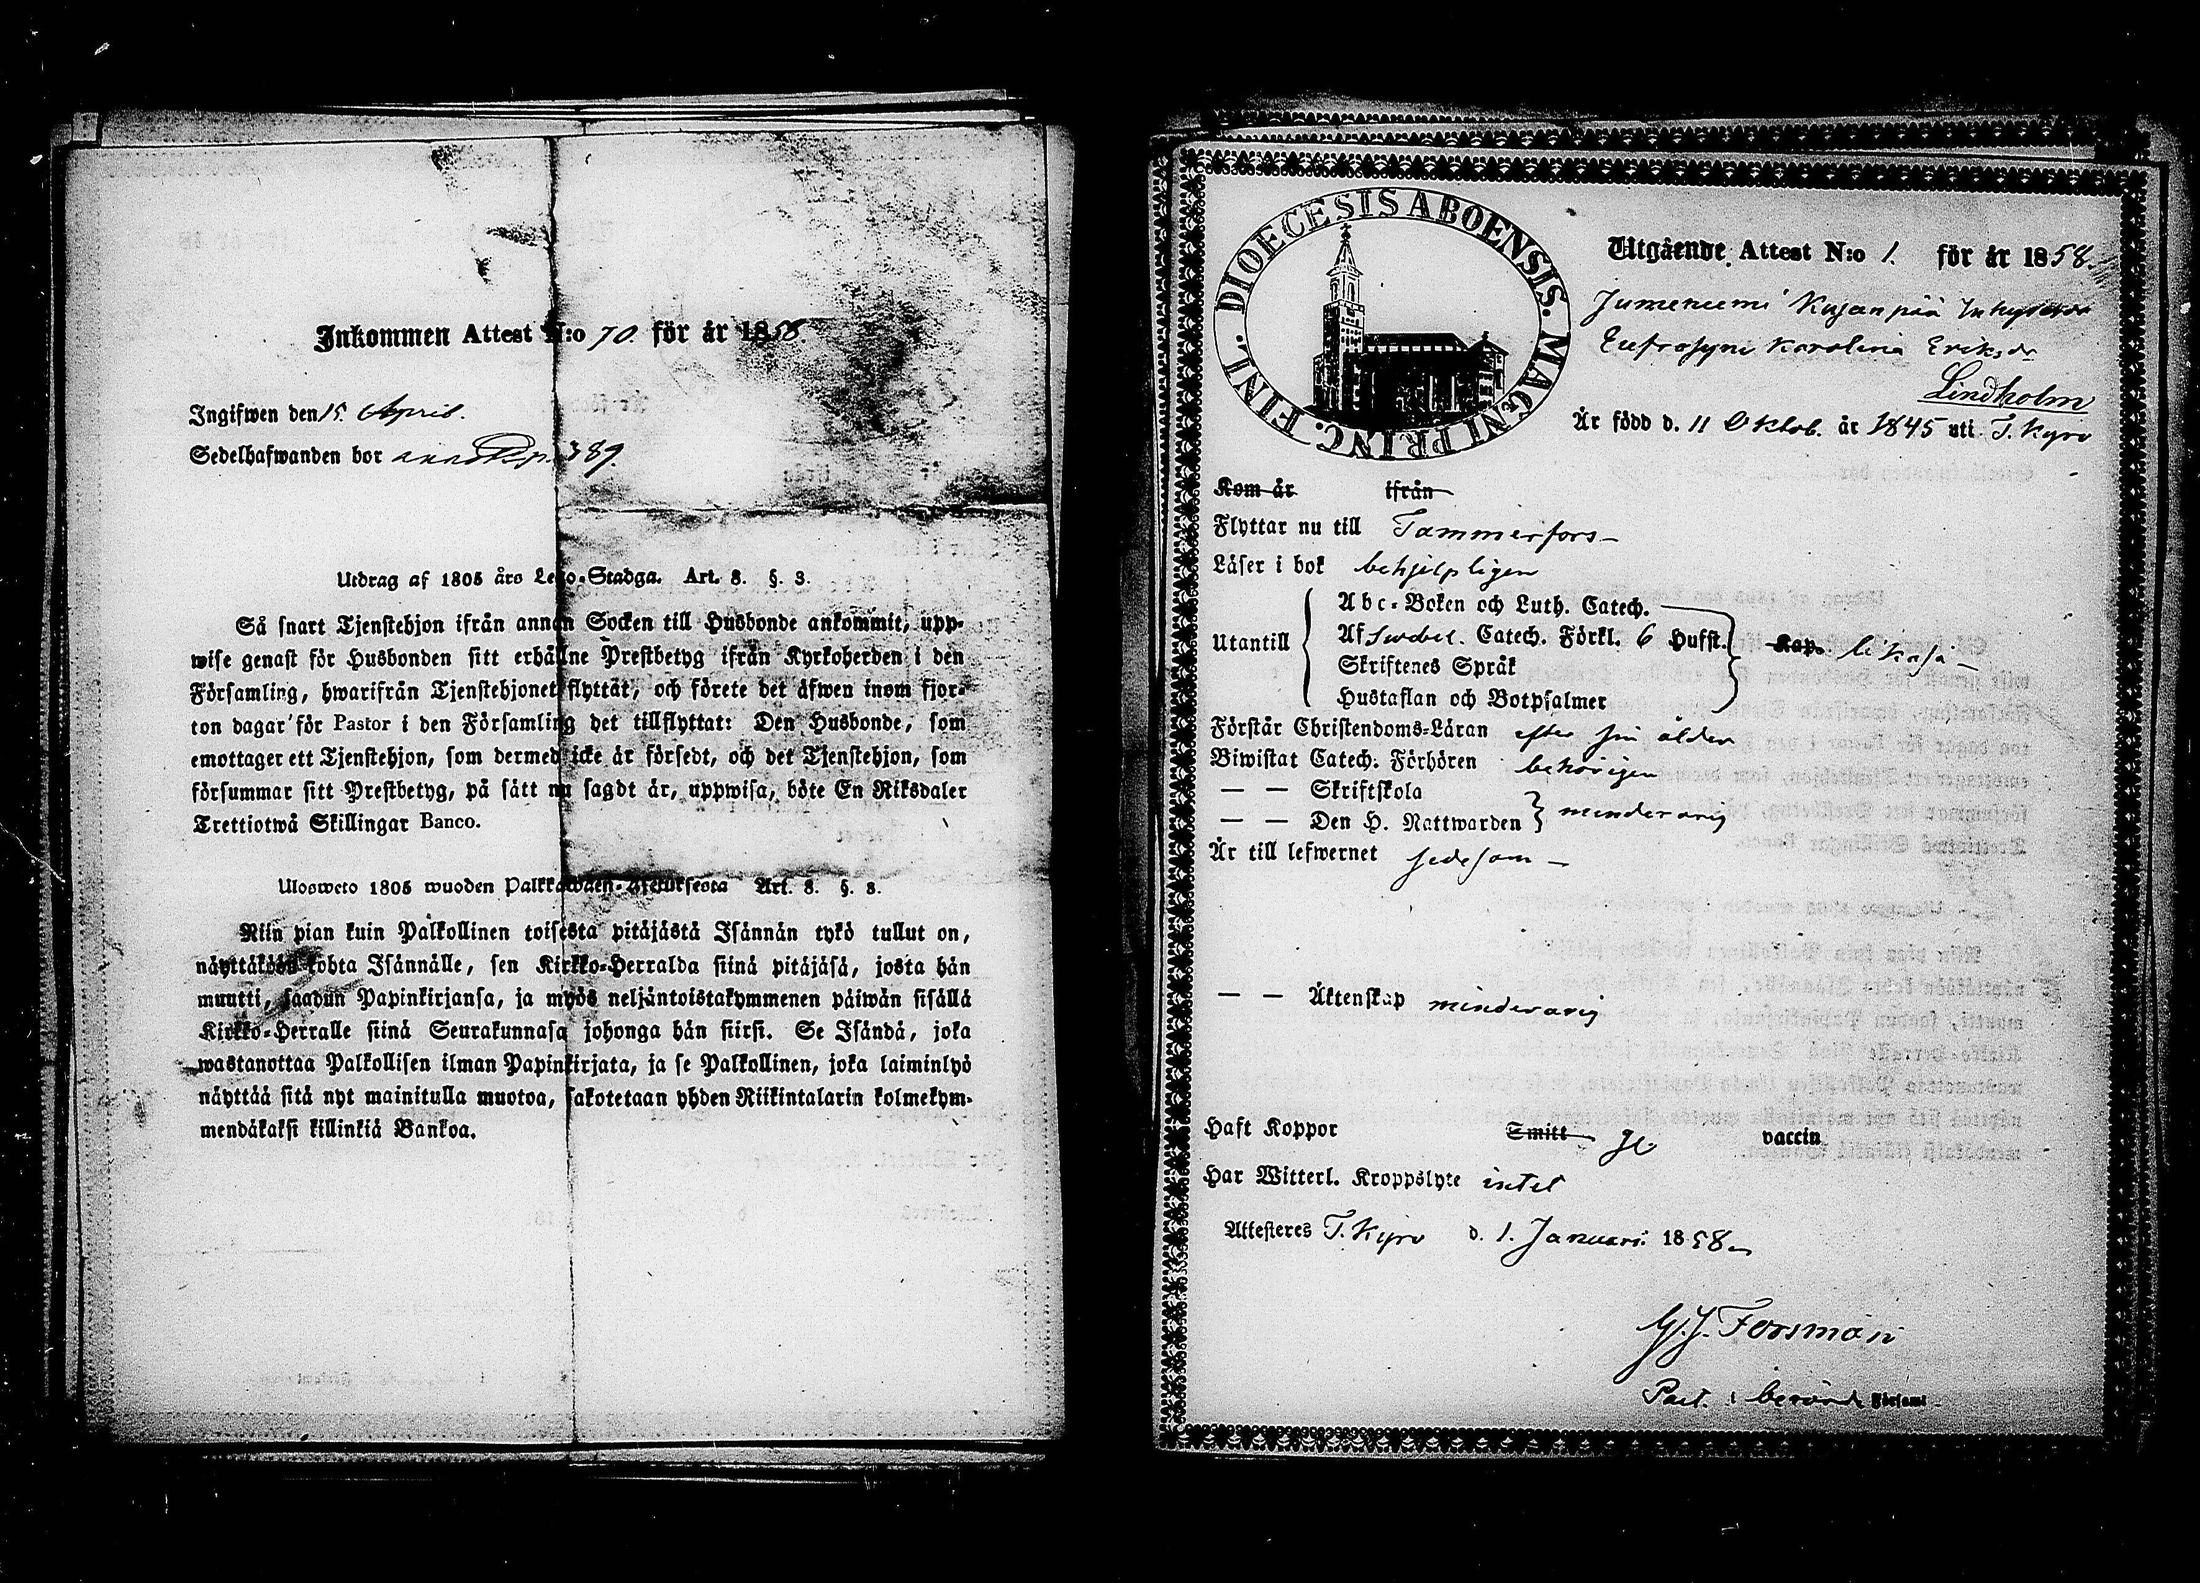 Inkommen Attest N:o 70. för år 1858.
Ingifwen den 15. April.
Sedelhafwanden bor 389.
Utdrag af 1805 års Lego-Stadga. Art. 8. §. 3.
Så snart Tjenstehjon ifrån annan Socken till Husbonde ankommit, upp-
wise genast för Husbonden sitt erhållne Prestbetyg ifrån Kyrkoherden i den
Församling, hwarifrån Tjenstehjonet flyttat, och förete det äfwen inom fjor-
ton dagar för Pastor i den Församling det tillflyttat: Den Husbonde, som
emottager ett Tjenstehjon, som dermed icke är försedt, och det Tjenstehjon, som
försummar sitt Prestbetyg, på sätt nu sagdt är, uppwisa, böte En Riksdaler
Trettiotwå Skillingar Banco.
Ulosweto 1805 wuoden Palkkawäen-Asetuksesta Art. 8. §. 3.
Niin pian kuin Palkollinen toisesta pitäjästä Isännän tykö tullut on,
näyttäköön kohta Isännälle, sen Kirkko-Herralda siinä pitäjäsä, josta hän
muutti, saadun Papinkirjansa, ja myös neljäntoistakymmenen päiwän sisällä
Kirkko-Herralle siinä Seurakunnasa johonga hän siirsi. Se Isändä, joka
wastanottaa Palkollisen ilman Papinkirjata, ja se Palkollinen, joka laiminlyö
näyttää sitä nyt mainitulla muotoa, sakotetaan yhden Riikintalarin kolmekym-
mendäkaksi killinkiä Bankoa.
DIOECESIS ABOENSIS. MAGNI PRINC. FINL.
Utgående Attest N:o 1. för år 1858.
Jumeniemi Kujanpää Inhyses
Eufrosyne Karolina Eriksdr
Lindholm
Är född d. 11 Oktob. år 1845 uti T. Kyro
Kom år ifrån
Flyttar nu till Tammerfors
Läser i bok behjelpligen
Abc-Boken och Luth. Catech.
Utantill Af Svebel. Catech. Förkl. 6 Hufst. Kap. likaså
Skriftenes Språk
Hustaflan och Botpsalmer
Förstår Christendoms-Läran efter sin ålder
Biwistat Catech. Förhören behörigen
— — Skriftskola
— — Den H. Nattwarden } minderårig
Är till lefwernet sedesam
— — Äktenskap minderårig
Haft Koppor Smitt ge vaccin
Har Witterl. Kroppslyte intet
Attesteres T. Kyro d. 1. Januari 1858
G. J. Forsman
Past. i berörde Församl.